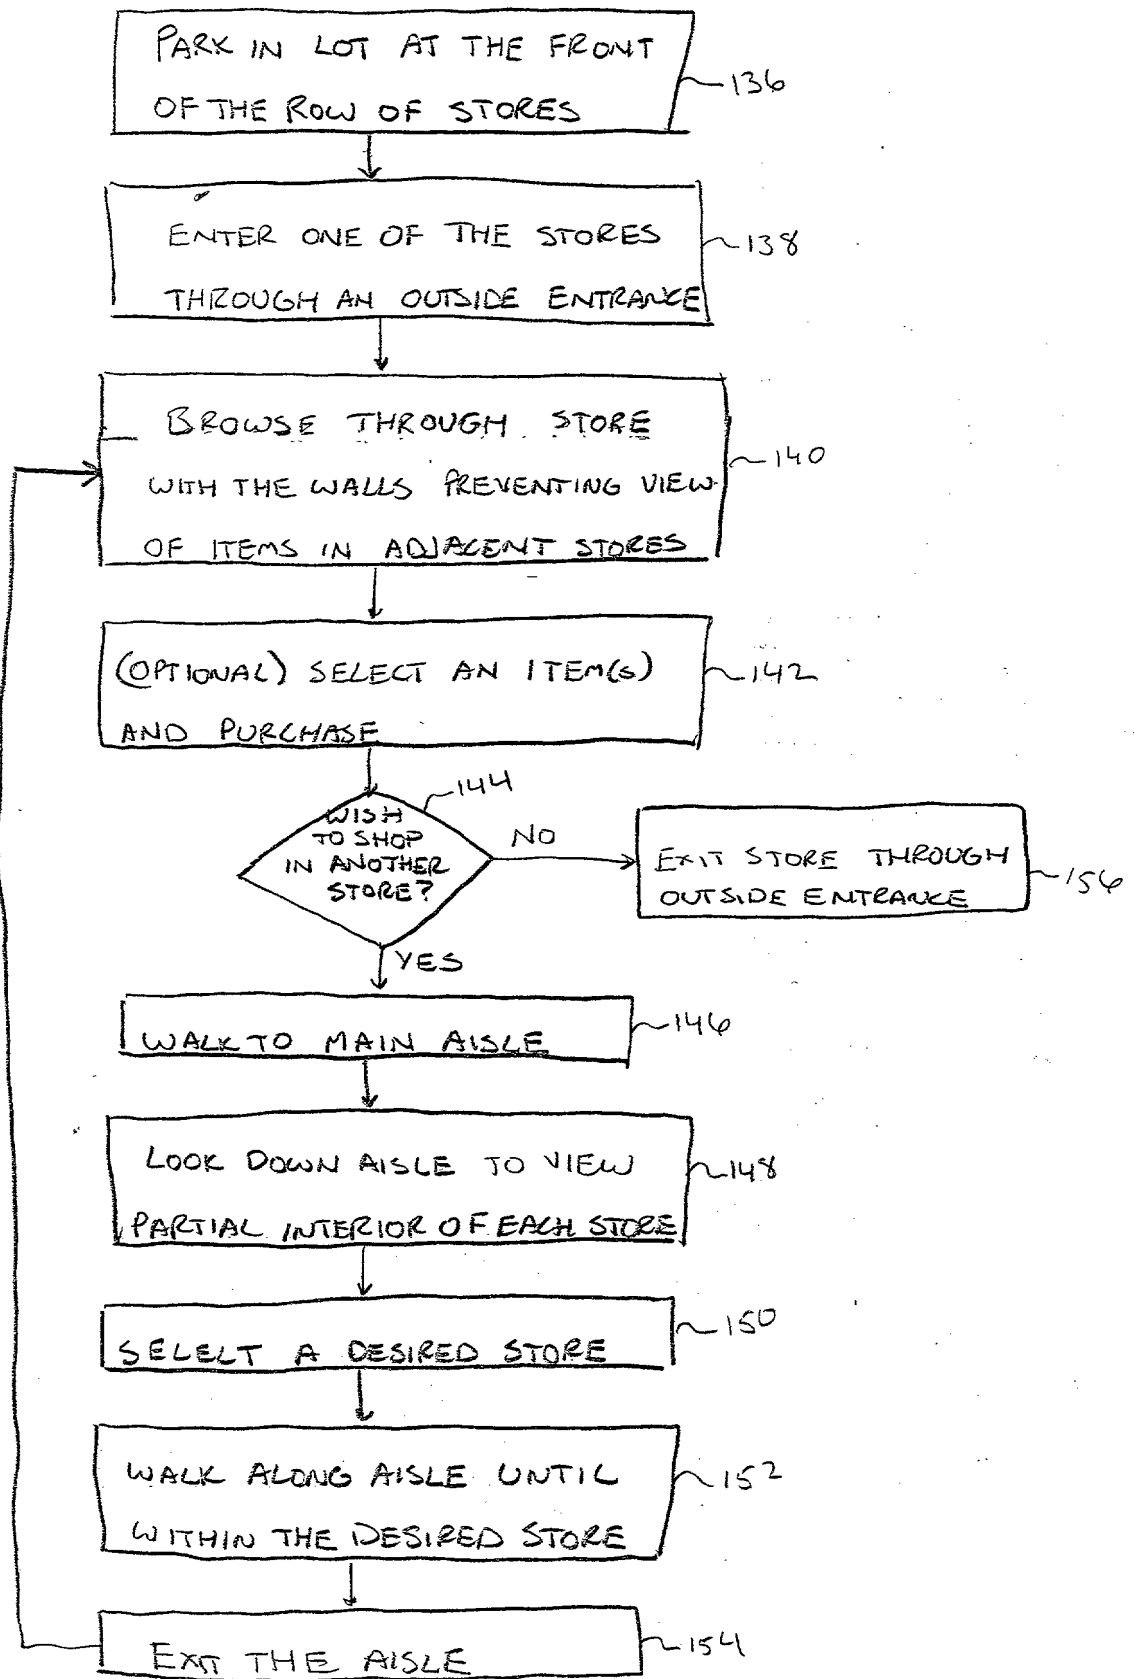 PARK IN LOT AT THE FRONT
OF THE ROW OF STORES
136
ENTER ONE OF THE STORES
THROUGH AN OUTSIDE ENTRANCE
138
BROWSE THROUGH STORE
WITH THE WALLS PREVENTING VIEW
OF ITEMS IN ADJACENT STORES
140
(OPTIONAL) SELECT AN ITEM(S)
AND PURCHASE
142
WISH
TO SHOP
IN ANOTHER
STORE?
144
NO
EXIT STORE THROUGH
OUTSIDE ENTRANCE
156
YES
WALK TO MAIN AISLE
146
LOOK DOWN AISLE TO VIEW
PARTIAL INTERIOR OF EACH STORE
148
SELECT A DESIRED STORE
150
WALK ALONG AISLE UNTIL
WITHIN THE DESIRED STORE
152
EXIT THE AISLE
154